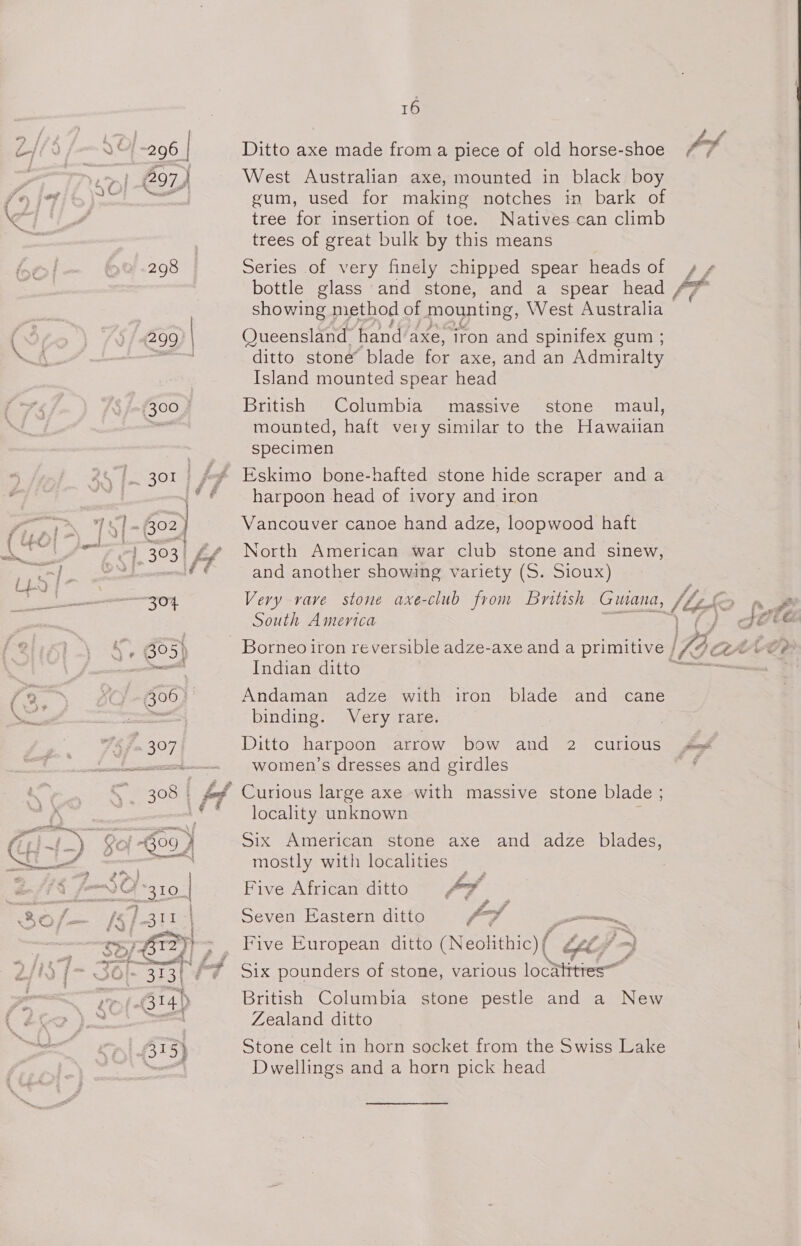 16
296 Ditto axe made from a piece of old horse-shoe
297 West Australian axe, mounted in black boy
gum, used for making notches in bark of
tree for insertion of toe. Natives can climb
trees of great bulk by this means
298 Series of very finely chipped spear heads of
bottle glass and stone, and a spear head
showing method of mounting, West Australia
299 Queensland hand axe, iron and spinifex gum ;
ditto stone blade for axe, and an Admiralty
Island mounted spear head
300 British Columbia massive stone maul,
mounted, haft very similar to the Hawaiian
specimen
301 Eskimo bone-hafted stone hide scraper and a
harpoon head of ivory and iron
302 Vancouver canoe hand adze, loopwood haft
303 North American war club stone and sinew,
and another showing variety (S. Sioux)
304 Very rare stone axe-club from British Guiana,
South America
305 Borneo iron reversible adze-axe and a primitive
Indian ditto
306 Andaman adze with iron blade and cane
binding. Very rare.
307 Ditto harpoon arrow bow and 2 curious
women's dresses and girdles
308 Curious large axe with massive stone blade ;
locality unknown
309 Six American stone axe and adze blades,
mostly with localities
310 Five African ditto
311 Seven Eastern ditto
312 Five European ditto (Neolithic)
313 Six pounders of stone, various localities
314 British Columbia stone pestle and a New
Zealand ditto
315 Stone celt in horn socket from the Swiss Lake
Dwellings and a horn pick head